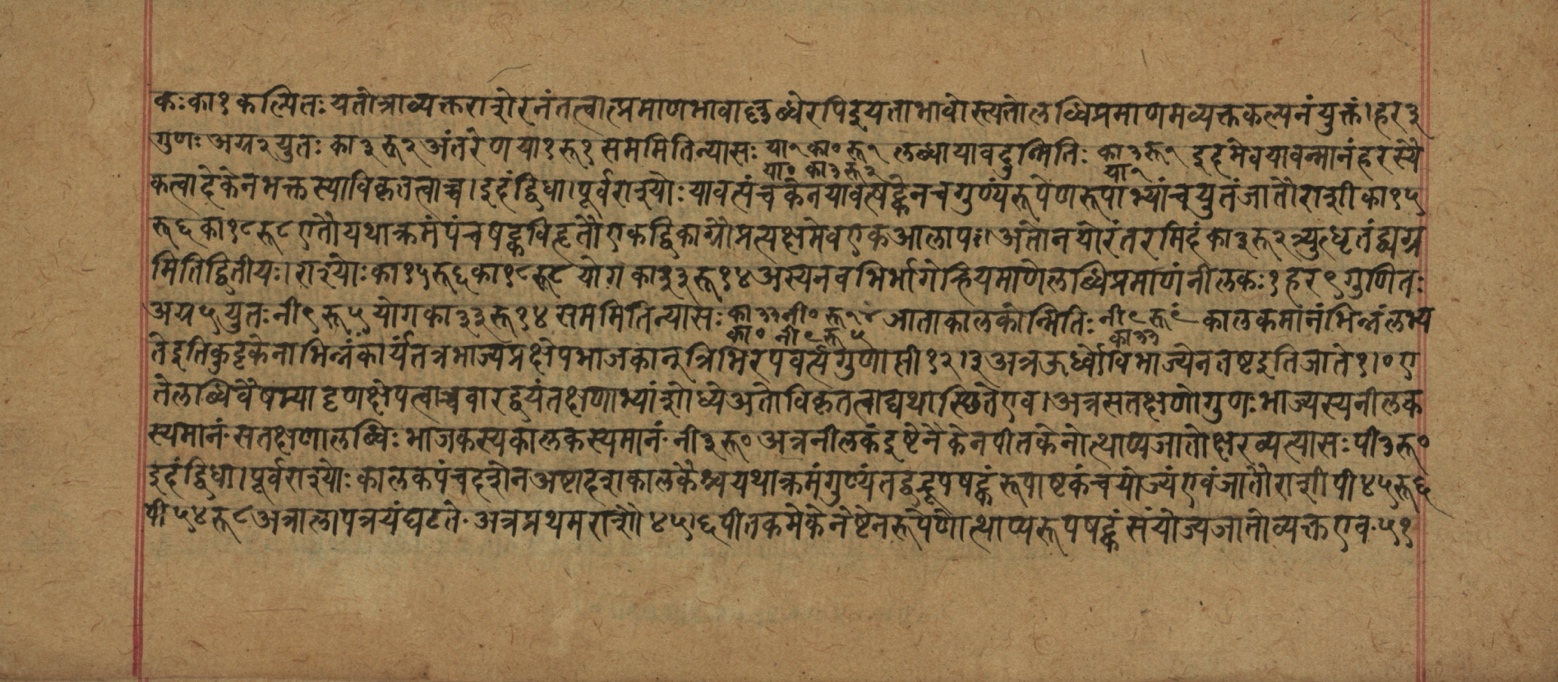 कः का १ कल्पितः यतोत्राव्यक्तराशेरनंतत्वात्प्रमाणभावाल्लब्धेरपि इयत्ताभावोस्त्यतोलब्धिप्रमाणमव्यक्तकल्पनंयुक्तं। हर ३
गुणः अग्र २ युतः का ३ रू २ अंतरेण या १ रू १ सममितिन्यासः या १ का ० रू १ लब्धायावदुन्मितिः का ३ रू १ इहमेवयावन्मानंहरस्यै
या ० का ३ रू २ या १
कत्वादेकेनभक्तस्याविकृतत्वाच्च। इहंद्विधा। पूर्वराश्योः यावत्पंचकेनयावत्षट्केनचगुण्यंरूपेणरूपाभ्यांचयुतंजातौराशी का १५
रू ६ का १८ रू ८ एतौयथाक्रमंपंचषट्कविहृतौएकद्विकाग्रौप्रत्यक्षमेवएकआलापः। अतोनयोरंतरमिहं का ३ रू २ त्र्युद्धृतंद्व्यग्र
मितिद्वितीयः। राश्योः का १५ रू ६ का १८ रू ८ योग का ३३ रू १४ अस्यनवभिर्भागेह्रियमाणेलब्धिप्रमाणंनीलकः १ हर ९ गुणितः
अग्र ५ युतः नी ९ रू ५ योग का ३३ रू १४ सममितिन्यासः का ३३ नी ० रू १४ आताकालकोन्मितिः नी ९ रू ९ कालकमानंभिन्नंलभ्य
का ० नी ९ रू ५ का ३३
तेइतिकुट्टकेनाभिन्नंकार्यंतत्रभाज्यप्रक्षेपभाजकान्त्रिभिरपवर्त्यगुणाप्ती १२। ३ अत्रऊर्ध्वोविभाज्येनतष्टइतिजाते १। ० ए
तेलब्धिवैषम्यादृणक्षेपत्वाच्चवारद्वयंतक्षणाभ्यांशोध्येअतोविकृतत्वाद्यथास्थितेएव। अत्रसतक्षणोगुणः भाज्यस्यनीलक
स्यमानं सतक्षणालब्धिः भाजकस्यकालकस्यमानं नी ३ रू ० अत्रनीलकंइष्टेनैकेनपीतकेनोत्थाप्यजातोक्षरव्यत्यासः पी ३ रू ०
इहंद्विधा। पूर्वराश्योः कालकपंचदशेनअष्टादशकालकैश्चयथाक्रमंगुण्यंतद्वद्रूपषट्कंरूपाष्टकंचयोज्यंएवंजातौराशी पी ४५ रू ६
पी ५४ रू ८ अत्रालापत्रयंघटते अत्रप्रथमराशौ ४५। ६ पीतकमेकेनेष्टेनरूपेणोत्थाप्यरूपषट्कंसंयोज्यजातोव्यक्तएव ५१